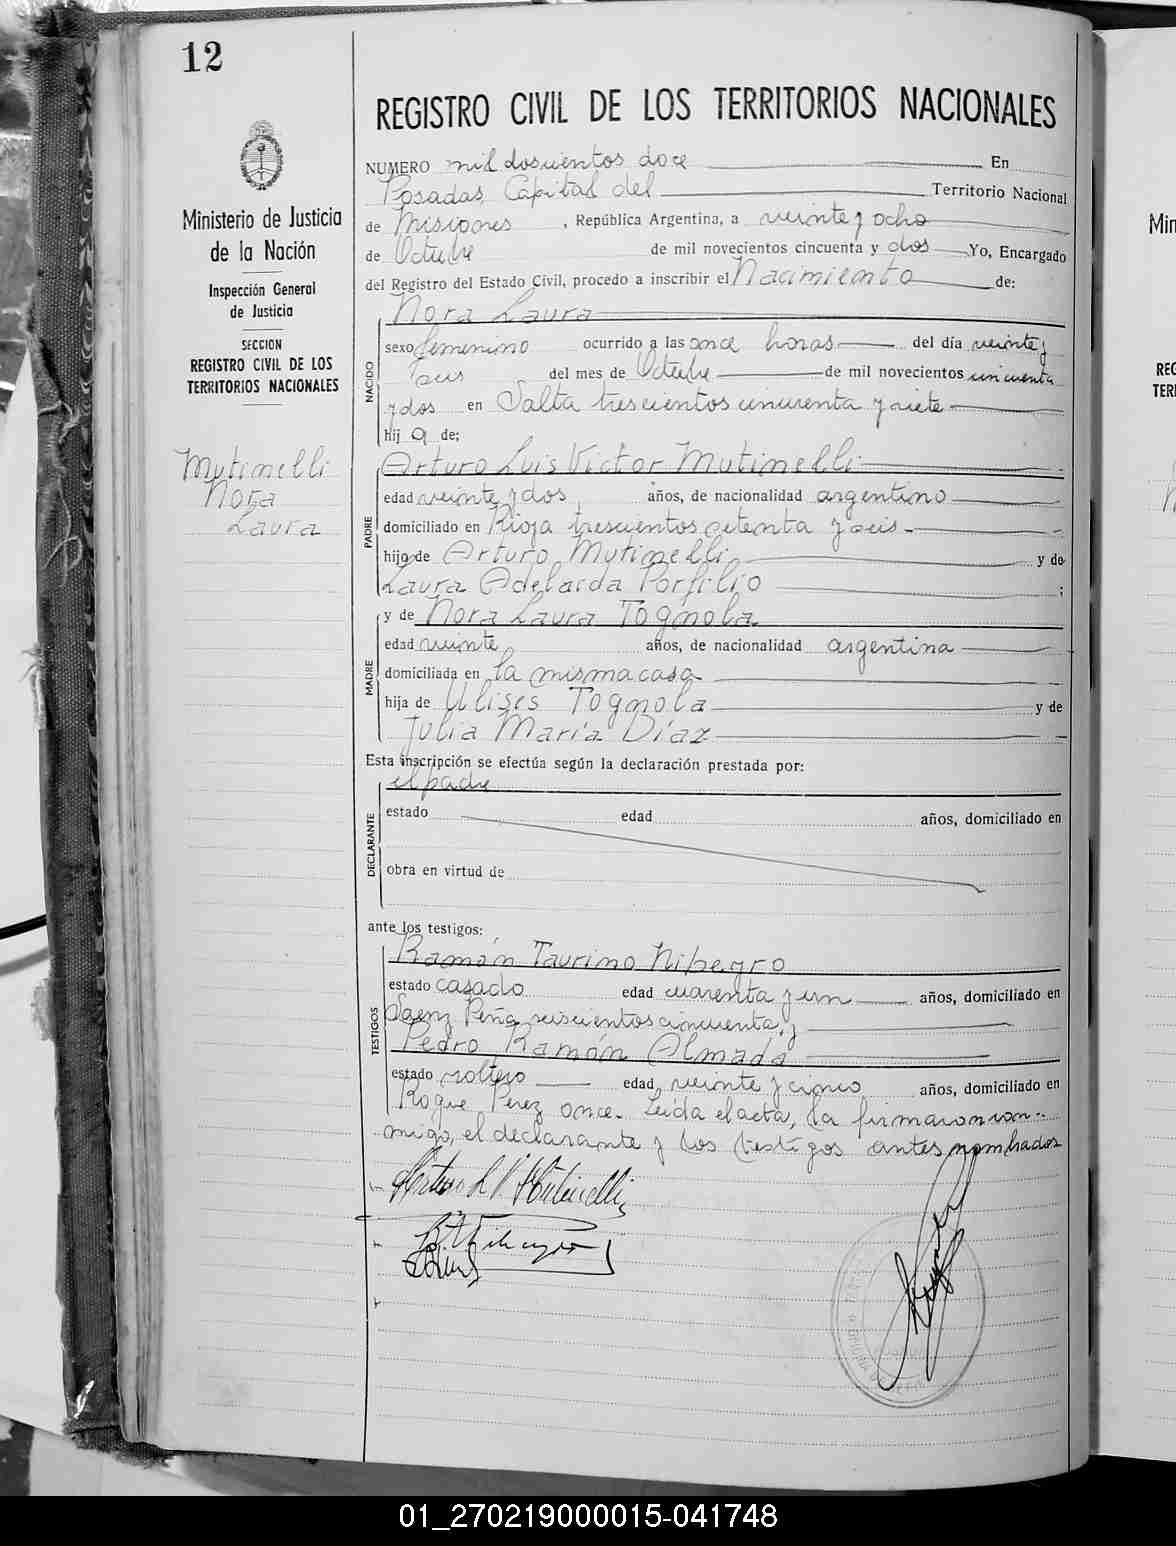 12
REGISTRO CIVIL DE LOS TERRITORIOS NACIONALES
Ministerio de Justicia
de la Nación
Inspección General
de Justicia
SECCION
REGISTRO CIVIL DE LOS
TERRITORIOS NACIONALES
Mutinelli
Nora
Laura
NUMERO mil doscientos doce En
Posadas Capital del Territorio Nacional
de Misiones, República Argentina, a veinte y ocho
de Octubre de mil novecientos cincuenta y dos Yo, Encargado
del Registro del Estado Civil, procedo a inscribir el Nacimiento de:
NACIDO
Nora Laura
sexo femenino ocurrido a las once horas del día veinte y
seis del mes de Octubre de mil novecientos cincuenta
y dos en Salta trescientos cincuenta y siete
hij a de;
PADRE
Arturo Luis Victor Mutinelli
edad veinte y dos años, de nacionalidad argentino
domiciliado en Rioja trescientos setenta y seis
hijo de Arturo Mutinelli y de
Laura Adelaida Porfilio ;
MADRE
y de Nora Laura Tognola
edad veinte años, de nacionalidad argentina
domiciliada en la misma casa
hija de Ulises Tognola y de
Julia María Díaz
Esta inscripción se efectúa según la declaración prestada por:
DECLARANTE
el padre
estado edad años, domiciliado en
obra en virtud de
ante los testigos:
TESTIGOS
Ramón Taurino
estado casado edad cuarenta y un años, domiciliado en
Saenz Peña seiscientos cincuenta, y
Pedro Ramón Almada
estado soltero edad veinte y cinco años, domiciliado en
Roque Perez once. Leida el acta, la firmaron con-
migo, el declarante y los testigos antes nombrados
Arturo L V Mutinelli
01_270219000015-041748